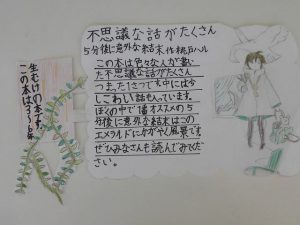 不思議な話がたくさん
5分後に意外な結末 作 桃戸ハル
この本は色々な人が書い
た不思議な話がたくさん
つまった1さつです。中には少
しこわい話も入っています。
ぼくの中で1番オススメの5
分後に意外な結末はこの
エメラルドにかがやく風景です
ぜひみなさんも読んでみてくだ
さい。
この本は3～6年
生むけの本です。